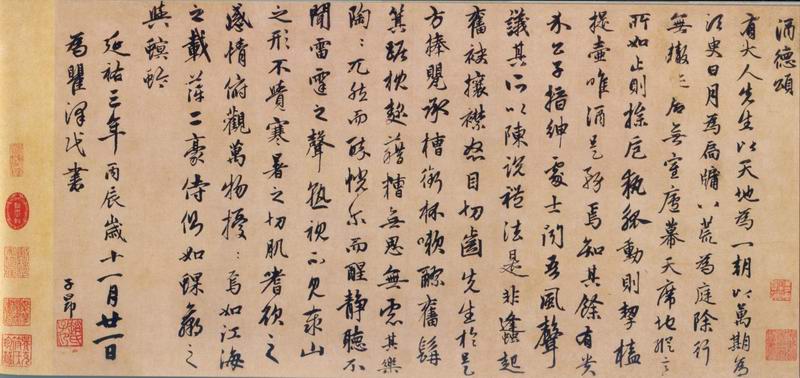 酒德頌
有大人先生以天地為一朝以萬期為
須臾日月為扃牖八荒為庭除行
無轍迹居無室廬幕天席地縱意
所如止則操卮執觚動則挈榼
提壺唯酒是務焉知其餘有貴
介公子搢紳處士聞吾風聲
議其所以陳說禮法是非蠭起
奮袂攘襟怒目切齒先生於是
方捧甖承槽銜杯嗽醪奮髯
箕踞枕麴藉糟無思無慮其樂
陶々兀然而醉恍爾而醒靜聽不
聞雷霆之聲熟視不見泰山
之形不覺寒暑之切肌嗜欲之
感情俯觀萬物擾々焉如江海
之載萍二豪侍側如蜾蠃之
與螟蛉
延祐三年丙辰歲十一月廿一日
為瞿澤民書
子昂